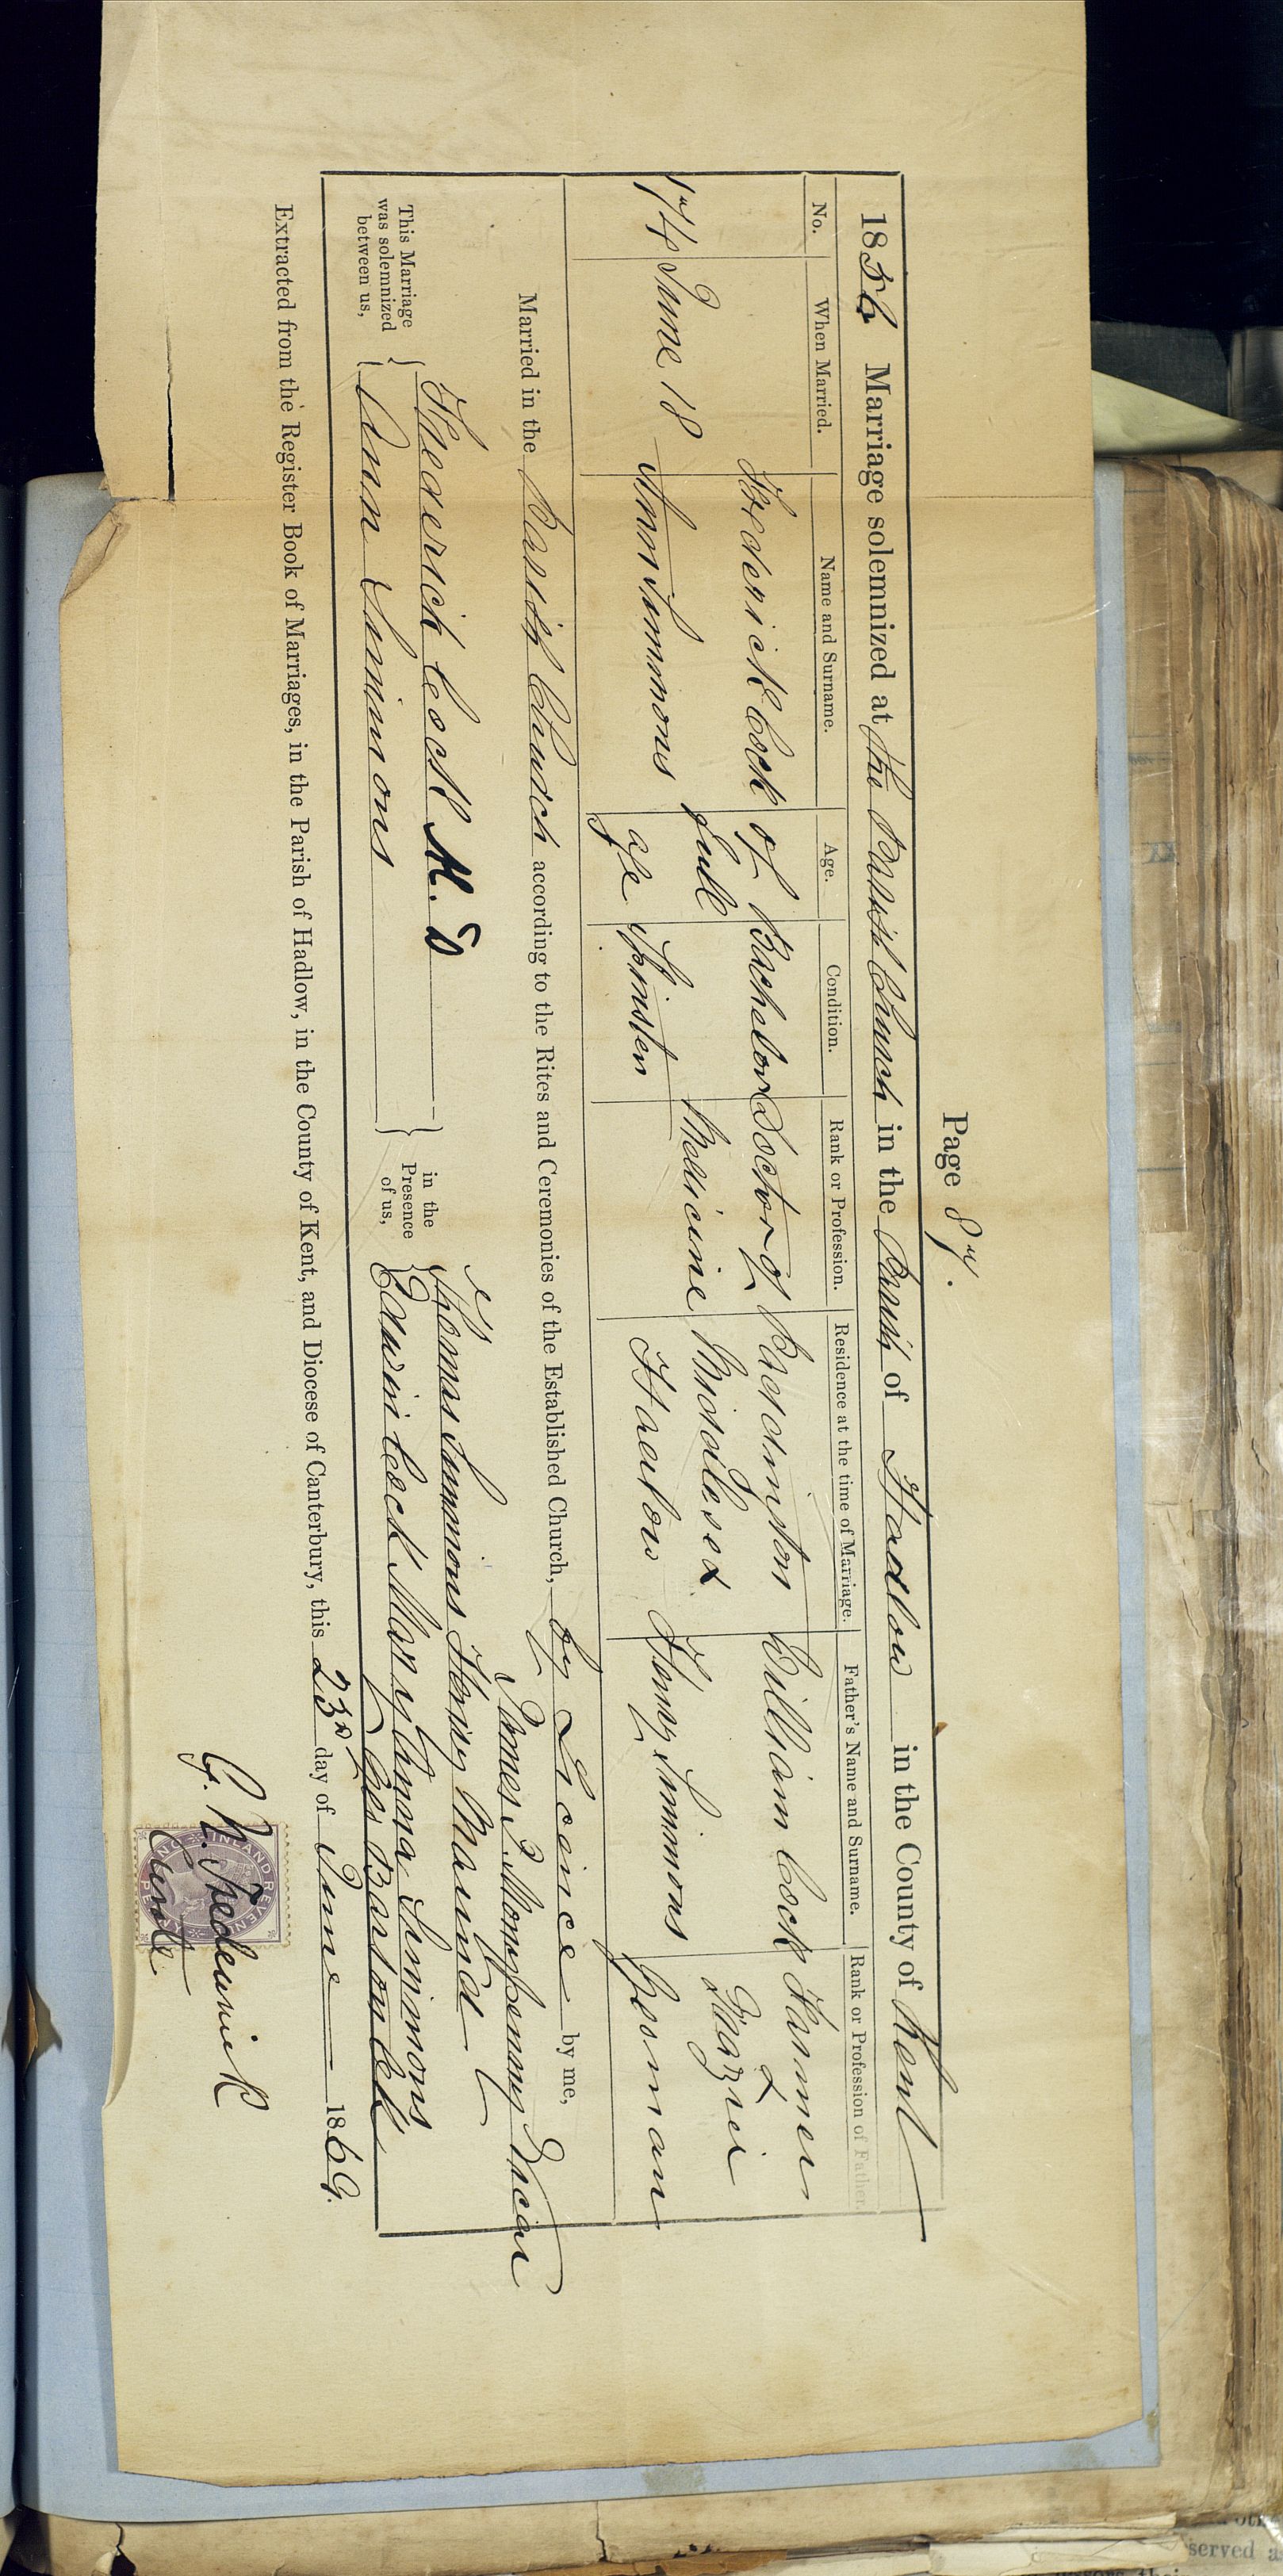 Page 87.
1856 Marriage solemnized at the Parish Church in the Parish of Hadlow in the County of Kent
No. When Married. Name and Surname. Age. Condition. Rank or Profession. Residence at the time of Marriage. Father's Name and Surname. Rank or Profession of Father.
Frederick Cock of Bachelor Doctor of Paddington William Cock Farmer &
174 June 18 full Medicine Middlesex Grazier
Ann Simmons age Spinster Hadlow Henry Simmons Yeoman
Married in the Parish Church according to the Rites and Ceremonies of the Established Church, by Licence by me,
James P. Monypenny Vicar
This Marriage was solemnized between us, Frederick Cock M. D in the Presence of us, Thomas Simmons Henry
Ann Simmons Edwin Cock Mary Anna Simmons
Extracted from the Register Book of Marriages, in the Parish of Hadlow, in the County of Kent, and Diocese of Canterbury, this 23rd day of June 1869.
INLAND REVENUE
PENNY
G. N. Frederick
Curate
served a